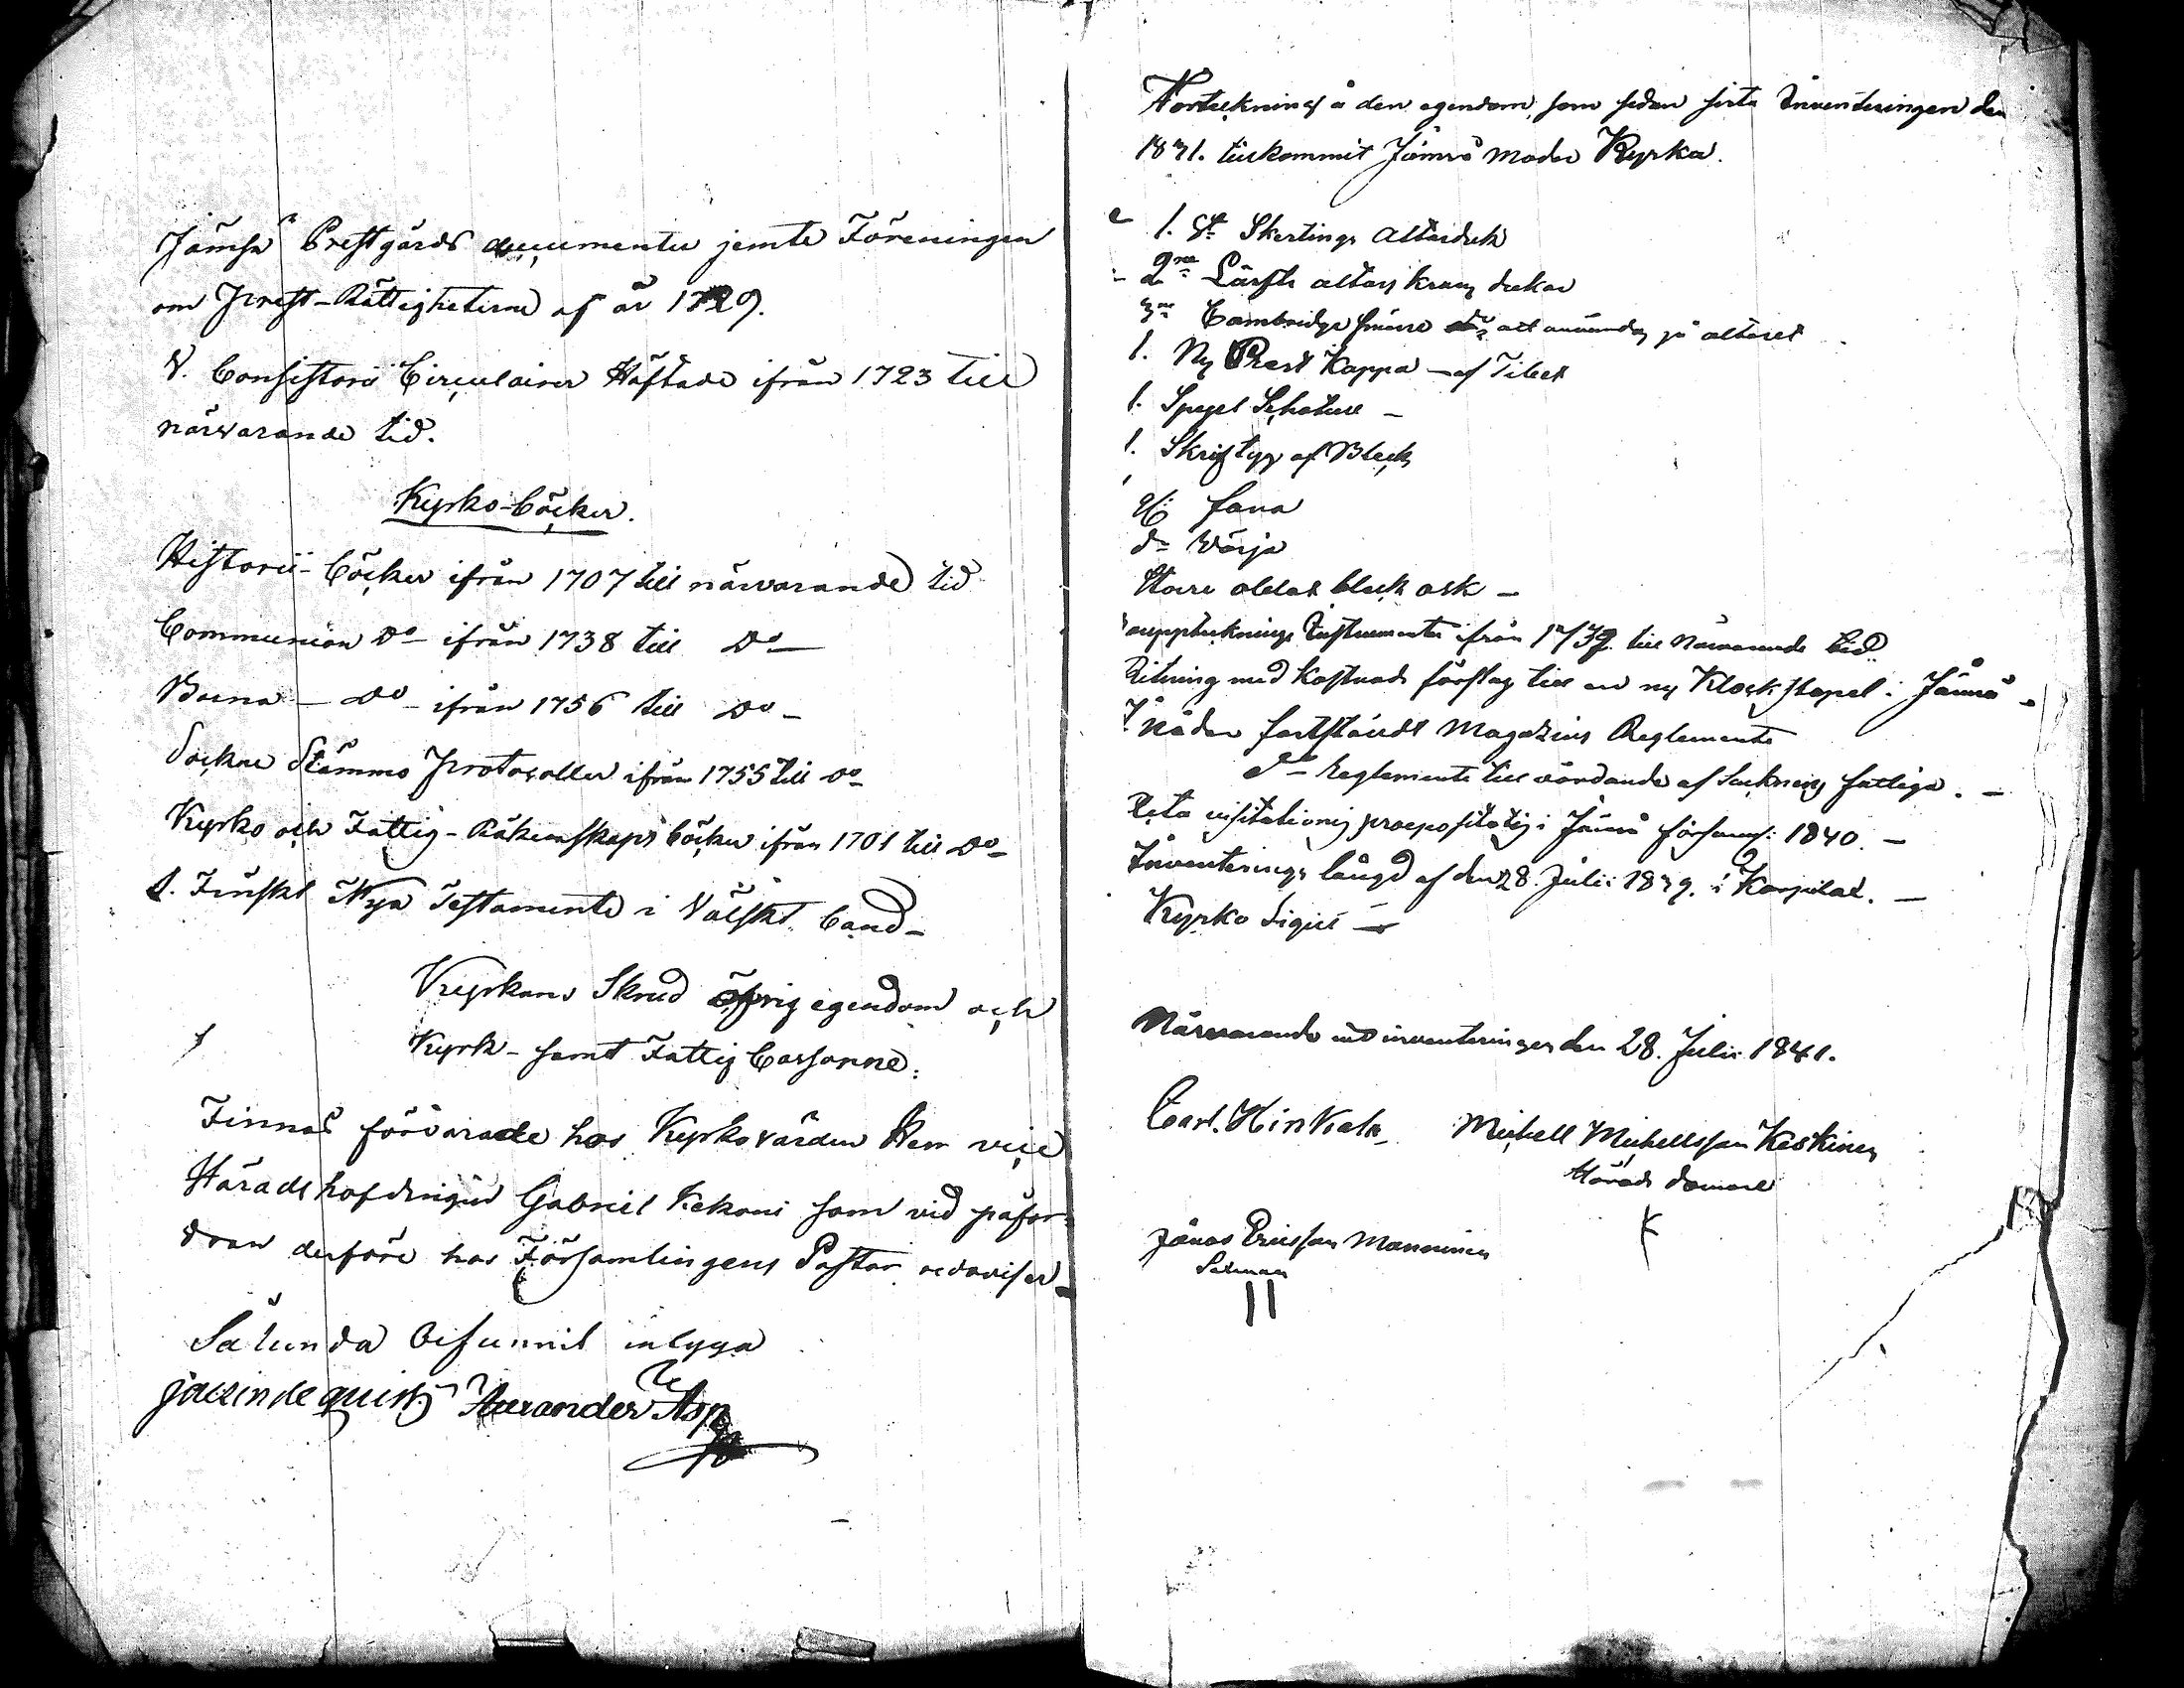 Jämsä Prestgårds documenter jemte Föreningen
om Prest-Rättigheterne af år 1729.
V. Consistorii Circulairer Häftade ifrån 1723 till
närvarande tid.
Kyrko-böcker.
Historiï-böcker ifrån 1707 till närvarande tid
Communion Do ifrån 1738 till Do
Barna Do ifrån 1756 till Do
Sockne Stämmo Protocoller ifrån 1755 till Do
Kyrko och Fattig-Räkenskaps böcker ifrån 1701 till Do
1. Finskt Nya Testamente i Välskt band
Kyrkans Skrud öfrig egendom och
Kyrk- samt Fattig Cassorne:
Finnas förvarade hos Kyrkovärden Herr vice
Häradshöfdingen Gabriel som vid påfor-
dran derföre hos Församlingens Pastor redoviser
Sålunda intyga
Alexander Asp
Förteckning å den egendom, som sedan sista Inventeringen den
1831. tillkommit Jämsä Moder Kyrka.
1. St. Skertings Altarduk
2ne Lärfts altar dukar
3ne Cambridge smärre do att användas på altaret
1. Ny Prest Kappa af Tibet
1. Spegel Schatull
1. Skriftyg af Bleck
fana
do Värja
Större oblat bleck ask
Instrumenter ifrån 1739 till Närvarande tid
Ritning med Kostnads förslag till en ny Klockstapel i Jämsä
I nåder fastståndt Magazins Reglemente
do Reglemente till vårdande af Socknens fattige.
Acta visitationis praepositalis i Jämsä församl: 1840.
Inventerings längd af den 28. Julii 1839. i Korpilax.
Kyrko Sigill
Närvarande vid inventeringen den 28. Julii 1841.
Carl. Hinkala Michell Michellsson Keskinen
Härads domare
Jonas Ericsson Manninen